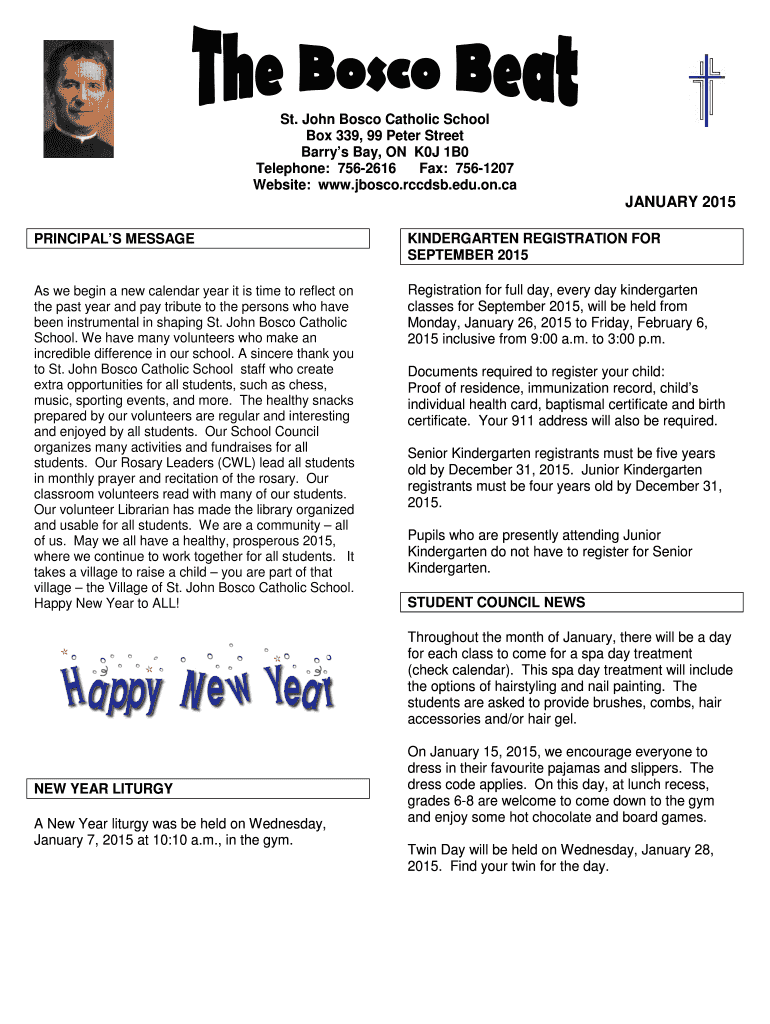 The Bosco Beat
St. John Bosco Catholic School
Box 339, 99 Peter Street
Barry's Bay, ON  K0J 1B0
Telephone:  756-2616     Fax:  756-1207
Website:  www.jbosco.rccdsb.edu.on.ca
JANUARY 2015
PRINCIPAL'S MESSAGE
As we begin a new calendar year it is time to reflect on
the past year and pay tribute to the persons who have
been instrumental in shaping St. John Bosco Catholic
School. We have many volunteers who make an
incredible difference in our school. A sincere thank you
to St. John Bosco Catholic School  staff who create
extra opportunities for all students, such as chess,
music, sporting events, and more.  The healthy snacks
prepared by our volunteers are regular and interesting
and enjoyed by all students.  Our School Council
organizes many activities and fundraises for all
students.  Our Rosary Leaders (CWL) lead all students
in monthly prayer and recitation of the rosary.  Our
classroom volunteers read with many of our students.
Our volunteer Librarian has made the library organized
and usable for all students.  We are a community – all
of us.  May we all have a healthy, prosperous 2015,
where we continue to work together for all students.  It
takes a village to raise a child – you are part of that
village – the Village of St. John Bosco Catholic School.
Happy New Year to ALL!
Happy New Year
NEW YEAR LITURGY
A New Year liturgy was be held on Wednesday,
January 7, 2015 at 10:10 a.m., in the gym.
KINDERGARTEN REGISTRATION FOR
SEPTEMBER 2015
Registration for full day, every day kindergarten
classes for September 2015, will be held from
Monday, January 26, 2015 to Friday, February 6,
2015 inclusive from 9:00 a.m. to 3:00 p.m.
Documents required to register your child:
Proof of residence, immunization record, child's
individual health card, baptismal certificate and birth
certificate.  Your 911 address will also be required.
Senior Kindergarten registrants must be five years
old by December 31, 2015.  Junior Kindergarten
registrants must be four years old by December 31,
2015.
Pupils who are presently attending Junior
Kindergarten do not have to register for Senior
Kindergarten.
STUDENT COUNCIL NEWS
Throughout the month of January, there will be a day
for each class to come for a spa day treatment
(check calendar).  This spa day treatment will include
the options of hairstyling and nail painting.  The
students are asked to provide brushes, combs, hair
accessories and/or hair gel.
On January 15, 2015, we encourage everyone to
dress in their favourite pajamas and slippers.  The
dress code applies.  On this day, at lunch recess,
grades 6-8 are welcome to come down to the gym
and enjoy some hot chocolate and board games.
Twin Day will be held on Wednesday, January 28,
2015.  Find your twin for the day.